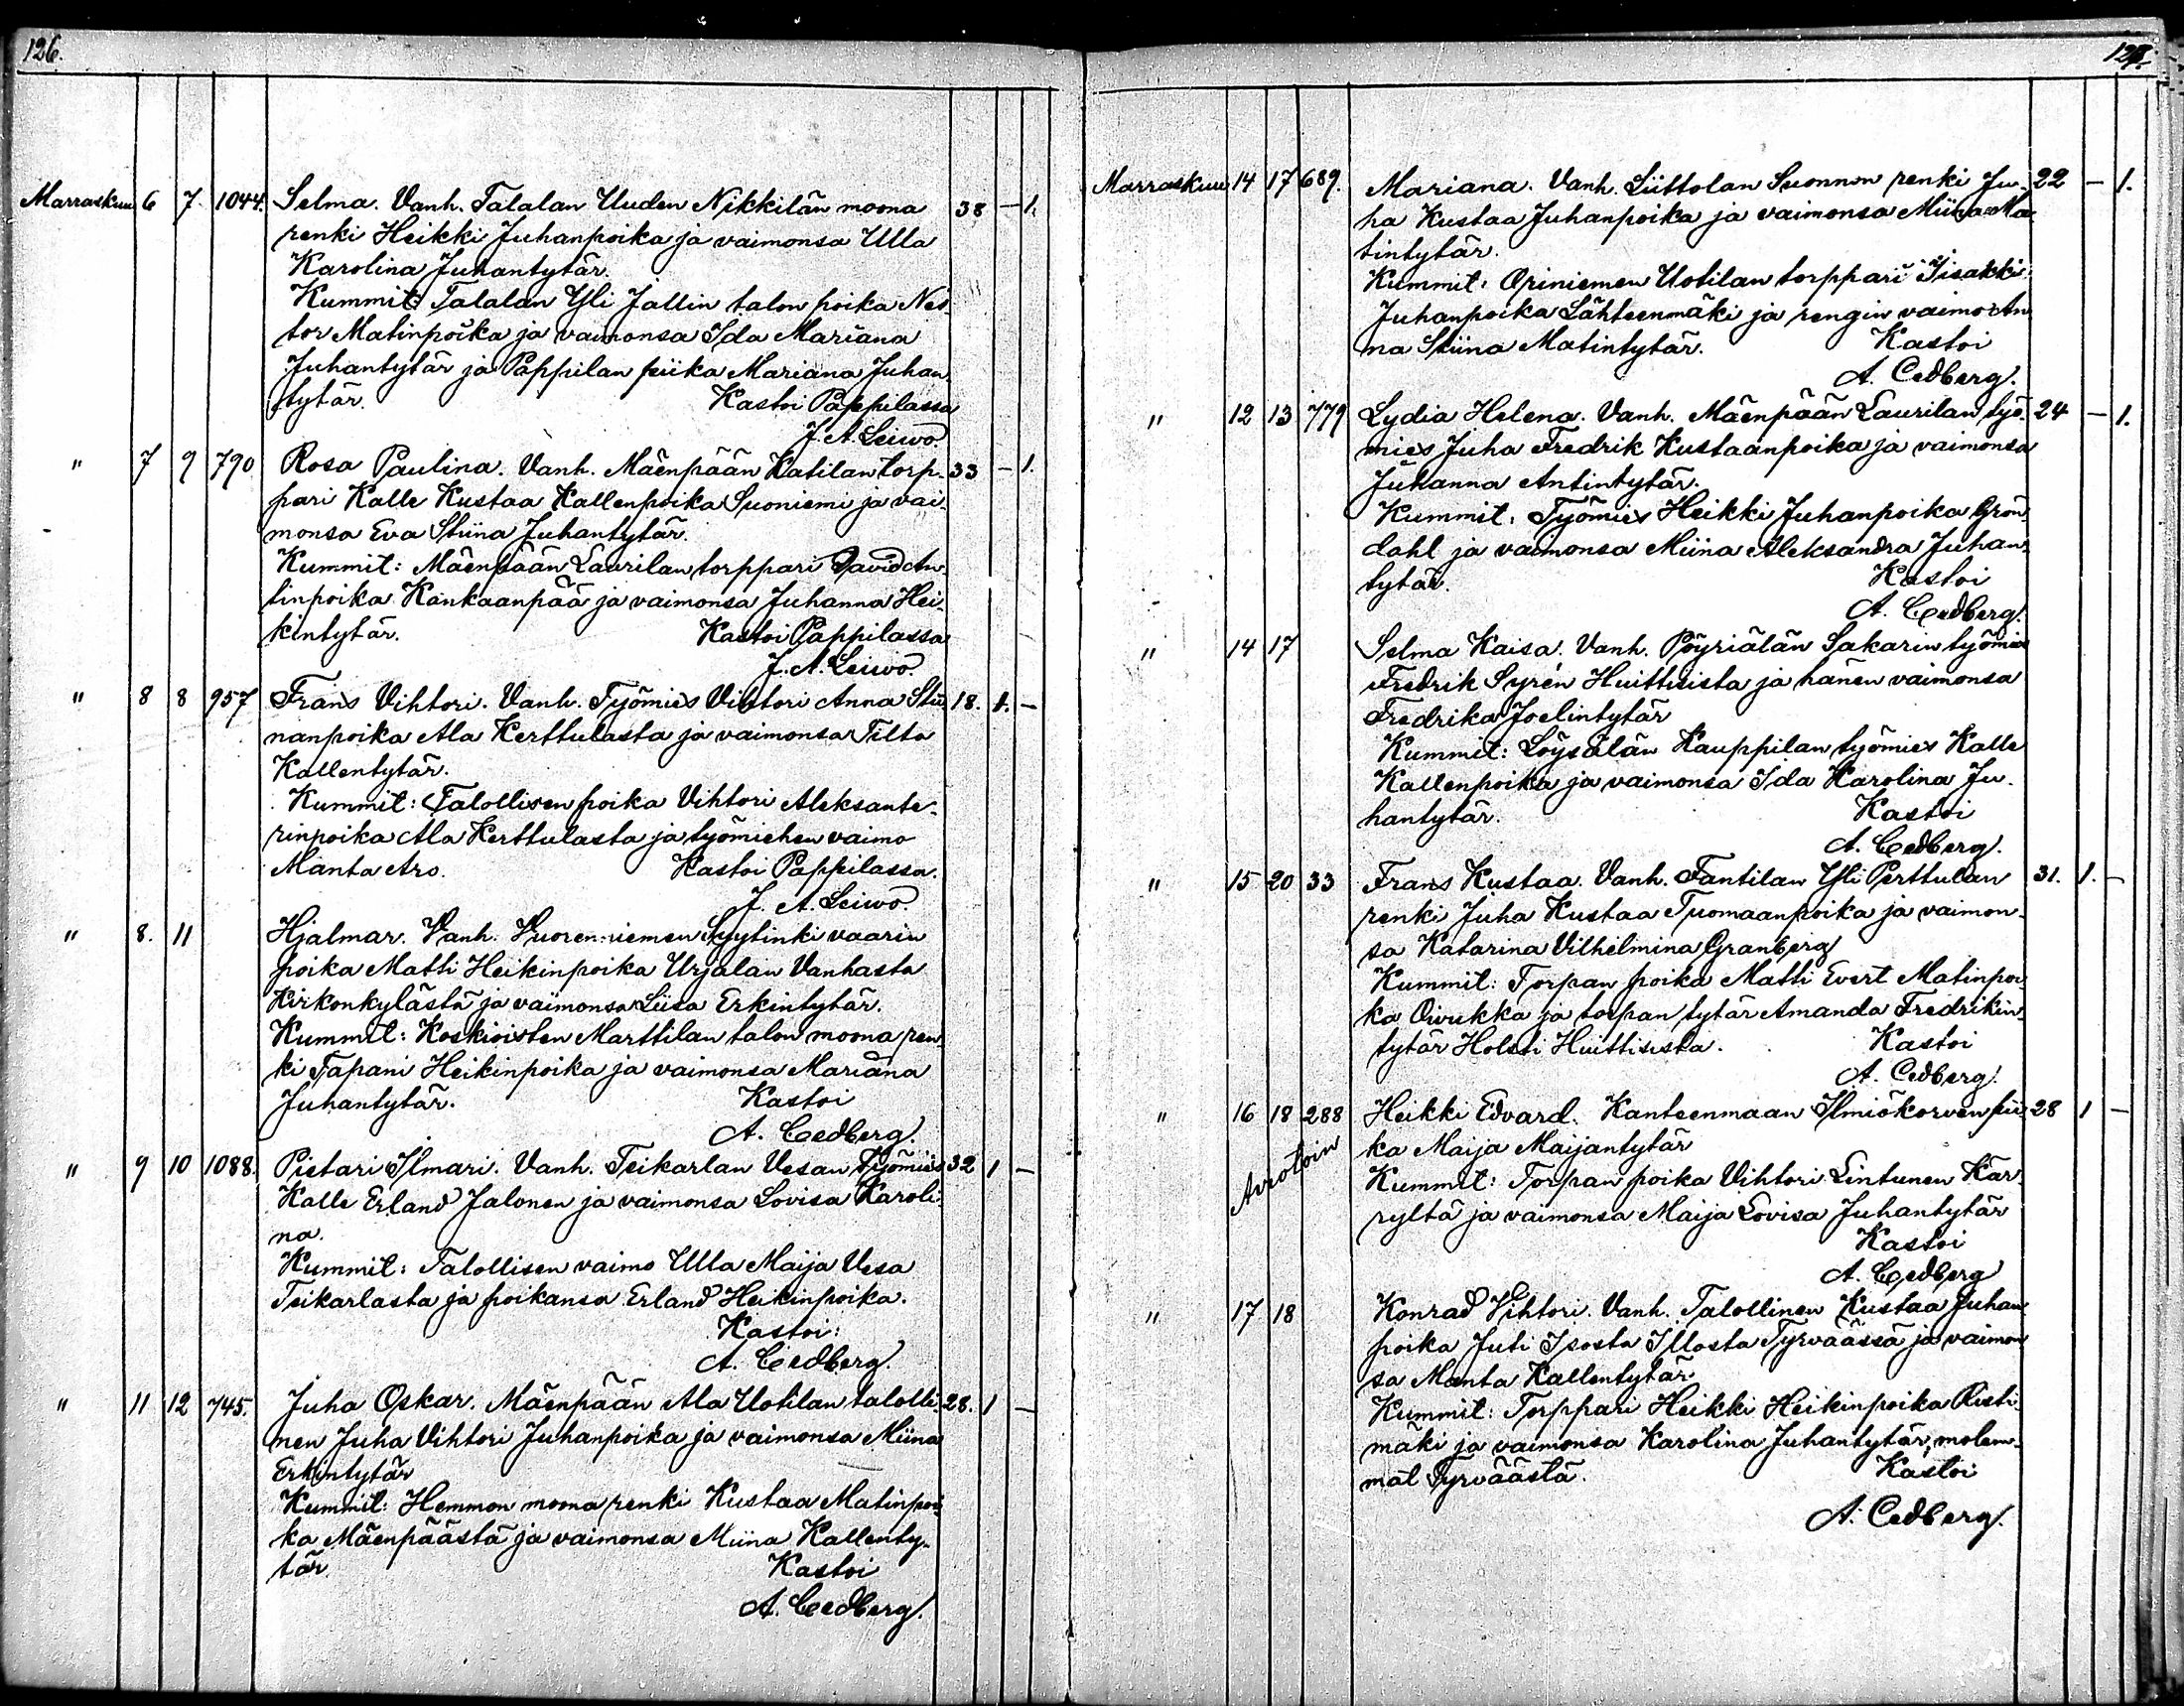 126.
Marraskuu 6 7. 1044. Selma. Vanh. Talalan Uuden Nikkilän moona 38 — 1.
renki Heikki Juhanpoika ja vaimonsa Ulla
Karolina Juhantytär.
Kummit: Talalan Yli Jallin talon poika Nes-
tor Matinpoika ja vaimonsa Ida Mariana
Juhantytär ja Pappilan piika Mariana Juhan-
tytär. Kastoi Pappilassa
J. A. Leiwo.
" 7 9 790 Rosa Paulina. Vanh. Mäenpään Katilan torp- 33 — 1.
pari Kalle Kustaa Kallenpoika Suoniemi ja vai-
monsa Eva Stiina Juhantytär.
Kummit: Mäenpään Laurilan torppari David An-
tinpoika Kankaanpää ja vaimonsa Juhanna Hei-
kintytär. Kastoi Pappilassa
J. A. Leiwo.
" 8 8 957 Frans Vihtori. Vanh. Työmies Vihtori Anna Stii- 18. 1. —
nanpoika Ala Kerttulasta ja vaimonsa Tilta
Kallentytär.
Kummit: Talollisen poika Vihtori Aleksante-
rinpoika Ala Kerttulasta ja työmiehen vaimo
Manta Aro. Kastoi Pappilassa.
J. A. Leiwo.
" 8. 11 Hjalmar. Vanh. Vuorenniemen Syytinki vaarin
poika Matti Heikinpoika Urjalan Vanhasta
Kirkonkylästä ja vaimonsa Liisa Erkintytär.
Kummit: Koskioisten Marttilan talon moona ren-
ki Tapani Heikinpoika ja vaimonsa Mariana
Juhantytär. Kastoi
A. Cedberg.
" 9 10 1088. Pietari Ilmari. Vanh. Teikarlan Vesan Työmies 32 1 —
Kalle Erland Jalonen ja vaimonsa Lovisa Karoli-
na.
Kummit: Talollisen vaimo Ulla Maija Vesa
Teikarlasta ja poikansa Erland Heikinpoika.
Kastoi:
A. Cedberg.
" 11 12 745. Juha Oskar. Mäenpään Ala Uotilan talolli- 28. 1 —
nen Juha Vihtori Juhanpoika ja vaimonsa Miina
Erkintytär
Kummit: Hemmon moona renki Kustaa Matinpoi-
ka Mäenpäästä ja vaimonsa Miina Kallenty-
tär. Kastoi
A. Cedberg.
127.
Marraskuu 14 17 689. Mariana. Vanh. Liittolan Suonnon renki Ju- 22 — 1.
ha Kustaa Juhanpoika ja vaimonsa Miina Ma-
tintytär.
Kummit: Oriniemen Uotilan torppari Iisakki
Juhanpoika Lähteenmäki ja rengin vaimo An-
na Stiina Matintytär. Kastoi
A. Cedberg.
" 12 13 779 Lydia Helena. Vanh. Mäenpään Laurilan työ- 24 — 1.
mies Juha Fredrik Kustaanpoika ja vaimonsa
Juhanna Antintytär.
Kummit: Työmies Heikki Juhanpoika Grön-
dahl ja vaimonsa Miina Aleksandra Juhan-
tytär. Kastoi
A. Cedberg.
" 14 17 Selma Kaisa. Vanh. Pöyriälän Sakarin työmies
Fredrik Syrén Huittisista ja hänen vaimonsa
Fredrika Joelintytär
Kummit: Löysälän Kauppilan työmies Kalle
Kallenpoika ja vaimonsa Ida Karolina Ju-
hantytär. Kastoi
A. Cedberg.
" 15 20 33 Frans Kustaa. Vanh. Fantilan Yli Perttulan 31. 1. —
renki Juha Kustaa Tuomaanpoika ja vaimon-
sa Katarina Vilhelmina Granberg
Kummit: Torpan poika Matti Evert Matinpoi-
ka Oivukka ja torpan tytär Amanda Fredrikin-
tytär Holsti Huittisista. Kastoi
A. Cedberg.
" 16 18 288 Heikki Edvard. Kanteenmaan Ilmiökorven pii- 28 1 —
Aviotoin
ka Maija Maijantytär
Kummit: Torpan poika Vihtori Lintunen Kär-
ryltä ja vaimonsa Maija Lovisa Juhantytär
Kastoi
A. Cedberg
" 17 18 Konrad Vihtori. Vanh. Talollinen Kustaa Juhan-
poika Juti Isosta Illosta Tyrväässä ja vaimon-
sa Manta Kallentytär
Kummit: Torppari Heikki Heikinpoika Risti-
mäki ja vaimonsa Karolina Juhantytär, molem-
mat Tyrväästä. Kastoi
A. Cedberg.